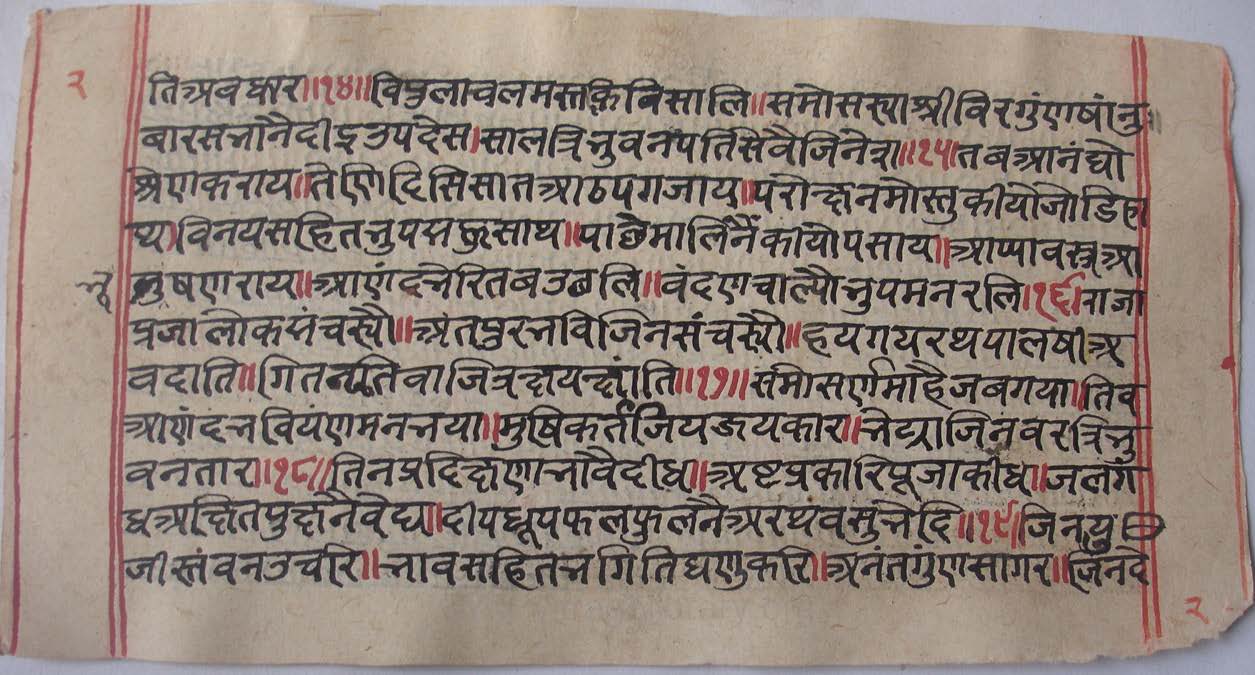 २
तिअवधार॥१४॥विपुलाचलमस्तकि विसालि॥समोसस्या श्रीविरगुंणषांनु
बारसभानै दीइ उपदेस।सालत्रिभुवनपतिसेवै जिनेश॥१५।तबआनंद्यो
श्रेणकराय॥तेणिदिसिसातआठपगजाय॥परोक्षनमोस्तुकीयोजोडिहा
थ।विनयसहितभुप साथ॥पाछैमालिनैंकीयोपसाय॥आप्पावस्त्रआ
भू
भुषणराय॥आणंदभेरितबउछलि॥वंदणचाल्यौभुपमनरलि।१६।राजा
प्रजालोकसंचस्यौ॥अंतपुरभविजिनसंचस्यौ॥हयगयरथपालषीअ
वदाति॥गितनृतिवाजित्र ॥१७॥समोसर्णमाहैजबगया॥तिव
आणंदभवियणमनभया॥मुषिकर्तंजियजयकार॥भेट्याजिनवरत्रिभु
वनतार॥१८॥तिनप्रदिक्षणाभावैदीध॥अष्टप्रकारिपूजाकीध॥जलगं
धअक्षितपुक्षनैवेद्य॥दीपधूपफलफुलनैअरथवसुभेदि॥१९।जिनपु
जीस्तंवनउचरि॥भावसहितभगितिघणुकरि॥अनंतगुंणसागर॥जिनदे
२